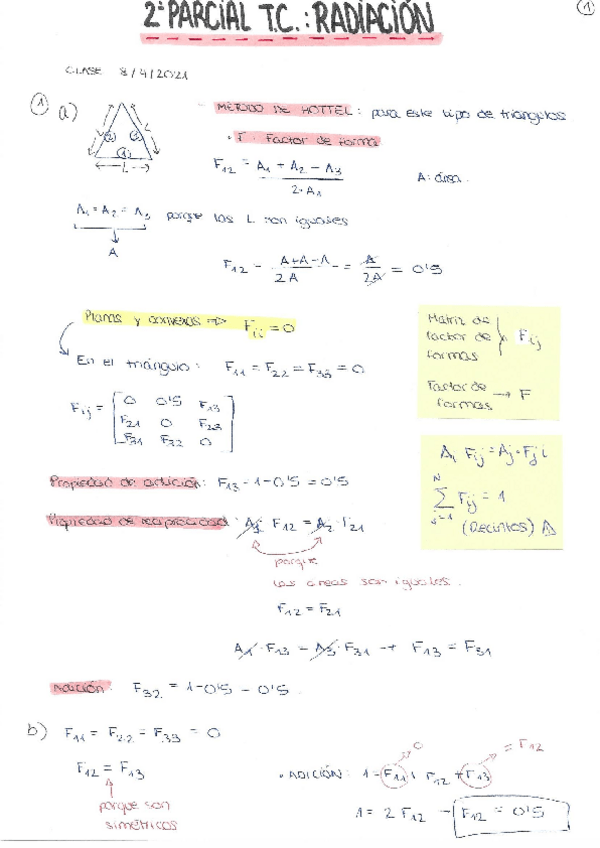 2º PARCIAL T.C.: RADIACIÓN
1
CLASE 8/4/2021
1 a)
MÉTODO DE HOTTEL: para este tipo de triángulos
F: Factor de forma
L
L
L
2
3
1
F12 = A1 + A2 - A3 / 2·A1
A: área
A1 = A2 = A3 porque las L son iguales
A
F12 = A+A-A / 2A = A / 2A = 0'5
Planas y convexas => Fii = 0
En el triángulo: F11 = F22 = F33 = 0
Matriz de factor de formas } Fij
Factor de formas → F
Fij = [ 0 0'5 F13
F21 0 F23
F31 F32 0 ]
Ai Fij = Aj·Fji
N
∑ Fij = 1
j=1
(Recintos)
Propiedad de adición: F13 = 1-0'5 = 0'5
Propiedad de reciprocidad: F12 = A2 · F21
porque
las áreas son iguales.
F12 = F21
A1·F13 = A3·F31 → F13 = F31
Adición: F32 = 1-0'5 = 0'5
b) F11 = F22 = F33 = 0
F12 = F13
porque son
simétricos
· ADICIÓN: 1 = F11 + F12 + F13
0
= F12
1 = 2 F12 → F12 = 0'5